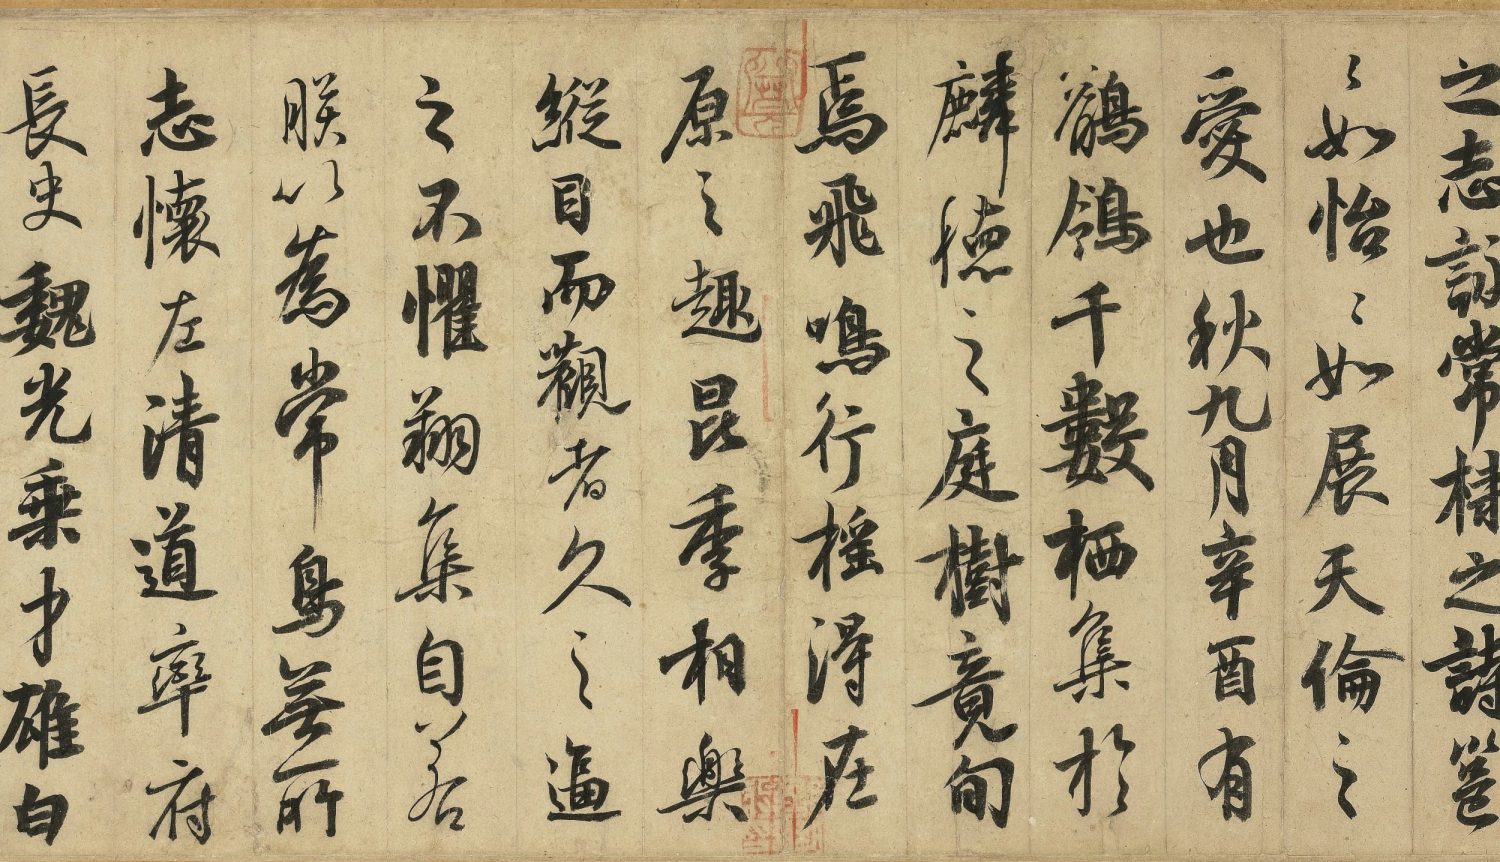 之志詠常棣之詩邕
〻如怡〻如展天倫之
愛也秋九月辛酉有
鶺鴒千數栖集於
麟徳之庭樹竟旬
焉飛鳴行摇得在
原之趣昆季相樂
縱目而觀者久之逼
之不懼翔集自若
朕以為常鳥無所
志懷左清道率府
長史魏光乗才雄白